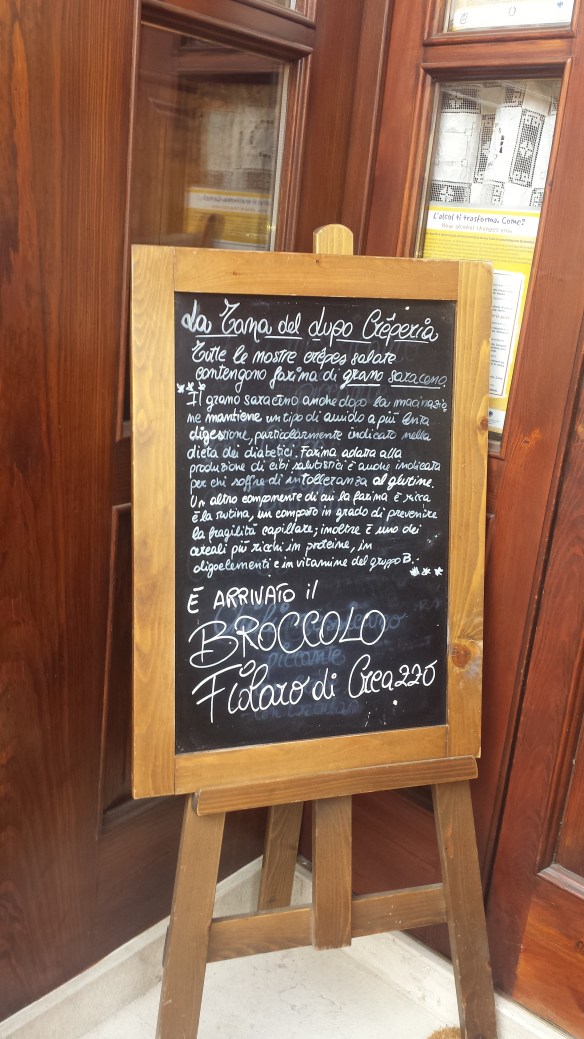 La Tana del Lupo Crêperia
Tutte le nostre crêpes salate
contengono farina di grano saraceno.
Il grano saraceno anche dopo la macinazio
ne mantiene un tipo di amido a più lenta
digestione, particolarmente indicato nella
dieta dei diabetici. Farina adatta alla
produzione di cibi salutistici è anche indicata
per chi soffre di intolleranza al glutine.
Un altro componente di cui la farina è ricca
è la rutina, un composto in grado di prevenire
la fragilità capillare; inoltre è uno dei
cereali più ricchi in proteine, in
oligoelementi e in vitamine del gruppo B.
È ARRIVATO il
BROCCOLO
Fiolaro di Creazzo
L'alcol ti trasforma. Come?
How alcohol changes you